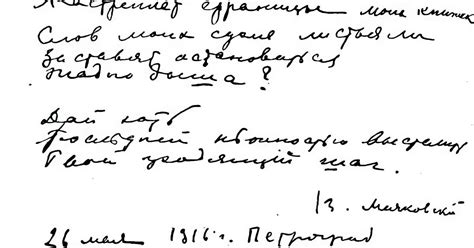 Растреплет страницы моих книжек
Слов моих сухие листья ли
Заставят остановиться
Жадно дыша?
Дай хоть
Последней нежностью выстелить
Твой уходящий шаг.
В. Маяковский
26 мая 1916 г. Петроград